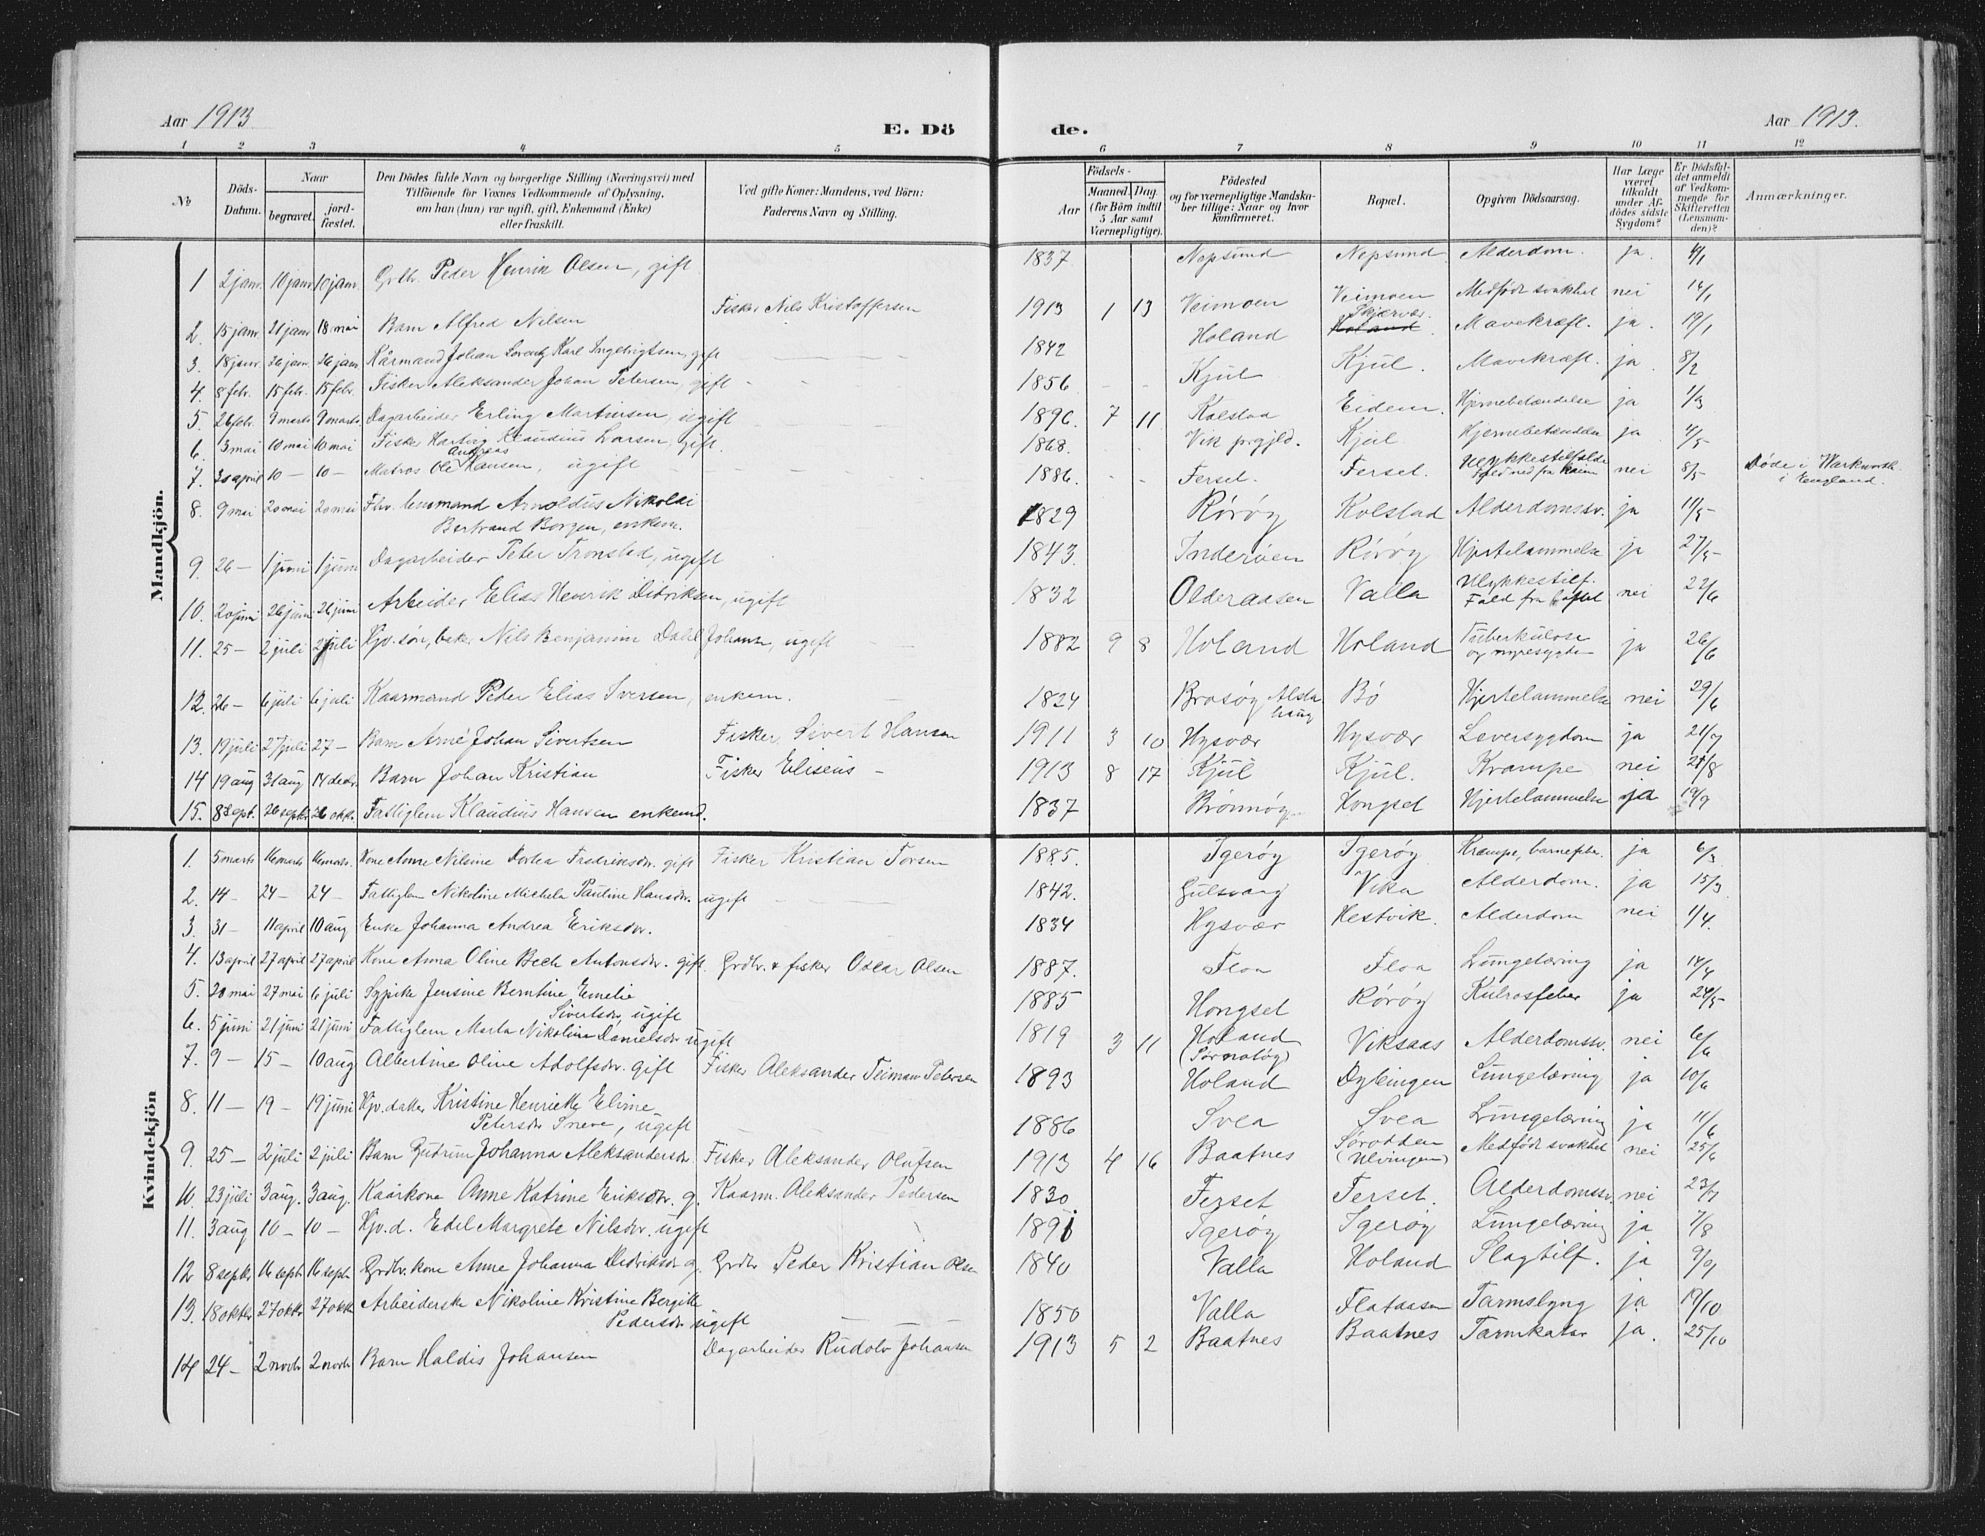 Aar 1913
E. Dö
1 2 3 4 5
No
Döds-Datum.
Naar
begravet.
jord-fæstet.
Den Dödes fulde Navn og borgerlige Stilling (Næringsvei) med
Tilföiende for Voxnes Vedkommende af Oplysning,
om han (hun) var ugift, gift, Enkemand (Enke)
eller fraskilt.
Ved gifte Koner: Mandens, ved Börn:
Faderens Navn og Stilling.
Mandkjön.
1 2 janr. 10 janr. 10 janr. Grdbr. Peder Henrik Olsen, gift
2. 15 janr. 21 janr. 18 mai Barn Alfred Nilsen Fisker Nils Kristoffersen
3. 18 janr. 26 janr. 26 janr. Kårmand Johan Lorentz Karl Ingebrigtsen, gift
4. 8 febr. 15 febr. 15 febr. Fisker Aleksander Johan Petersen, gift
5. 26 febr. 9 marts 9 marts Dagarbeider Erling Martinsen, ugift
6. 3 mai 10 mai 10 mai Fisker Hartvig Klaudius Larsen, gift
7. 30 april 10 – 10 – Matros Ole Andreas Hansen, ugift
8. 9 mai 20 mai 20 mai Fhv. lensmand Arnoldus Nikolai
Bertrand Borgen, enkem.
9. 26 – 1 juni 1 juni Dagarbeider Peter Tronstad, ugift
10. 20 juni 26 juni 26 juni Arbeider Elias Henrik Didriksen, ugift
11. 25 – 2 juli 2 juli Gjv. søn, bak. Nils Benjamin Dahl Johans., ugift
12. 26 – 6 juli 6 juli Kaarmand Peder Elias Iversen, enkem.
13. 19 juli 27 juli 27 – Barn Arne Johan Sivertsen Fisker Sivert Hansen
14 19 aug 31 aug 14 decbr. Barn Johan Kristian Fisker Eliseus –
15. 8 sept. 26 septr. 26 oktr. Fattiglem Klaudius Hansen enkemd.
Kvindekjön
1. 5 marts 16 marts 16 marts Kone Anne Nilsine Dortea Fredriksdr. gift Fisker Kristian Torsen
2. 14 – 24 – 24 – Fattiglem Nikoline Michela Pauline Hansdr. ugift
3. 31 – 11 april 10 aug Enke Johanna Andrea Eriksdr.
4. 13 april 27 april 27 april Kone Anna Oline Bech Antonsdr. gift. Grdbr. & fisker Oscar Olsen
5. 20 mai 27 mai 6 juli Sypike Jensine Berntine Emelie
Sivertsdr, ugift
6. 5 juni 21 juni 21 juni Fattiglem Marta Nikoline Danielsdr ugift
7. 9 – 15 – 10 aug Albertine Oline Adolfsdr. gift Fisker Aleksander Teiman Petersen
8. 11 – 19 – 19 juni Gjv. datter Kristine Henriette Eline
Petersdr Sneve, ugift
9. 25 – 2 juli 2 juli Barn Gudrun Johanna Aleksandersdr. Fisker Aleksander Olufsen
10. 23 juli 3 aug. 3 aug. Kaarkone Anne Katrine Eriksdr. g. Kaarm. Aleksander Pedersen
11. 3 aug 10 – 10 – Gjv. d. Edel Margrete Nilsdr. ugift
12 8 septr 16 septr 16 septr Grdbr. kone Anne Johanna Didriksdr g. Grdbr Peder Kristian Olsen
13. 18 oktr 27 oktr 27 oktr Arbeiderske Nikoline Kristine Bergitte
Pedersdr ugift
14 24 – 2 novbr 2 novbr Barn Haldis Johansen Dagarbeider Rudolv Johansen
de.
Aar 1913.
6 7 8 9 10 11 12
Födsels-
Aar
Maaned. Dag.
(for Börn indtil
5 Aar samt
Værnepligtige).
Födested
og for værnepligtige Mandska-
ber tillige: Naar og hvor
konfirmeret.
Bopæl.
Opgiven Dödsaarsag.
Har Læge
været
tilkaldt
under Af-
dödes sidste
Sygdom?
Er Dödsfal-
det anmeldt
af Vedkom-
mende for
Skifteretten
(Lensman-
den)?
Anmærkninger.
1837 Nepsund Nepsund Alderdom. ja.
1913 1 13 Veimoen Veimoen Medfödt svakhet nei 16/1
1842 Holand Skjervær. Holand Mavekræft. ja. 19/1
1856 Kjul Kjul. Mavekræft. ja 8/2
1896 7 11 Kolstad Eidem. Hjernebetændelse ja 1/3
1868. Vik prgjld. Kjul Hjernebetændelse ja 4/5
1886. Ferset. Ferset. Ulykkestilfælde nei 8/5 Døde i
i England.
1829 Rørøy Kolstad Alderdomssv. ja 11/5
1843 Inderøen Rørøy Hjertelammelse ja 27/5
1832 Olderaasen Valla Ulykkestilf.
Fald fra loftet nei 22/6
1882 9 8 Holand Holand Tuberkulose
og nyresygdom ja 26/6
1824 Brasøy Alsta
haug Bö Hjertelammelse nei 29/6
1911 3 10 Hysvær Hysvær Leversygdom ja 21/7
1913 8 17 Kjul Kjul. Krampe nei 21/8
1837 Brönnöy Hongset Hjertelammelse ja 19/9
1885. Igerøy Igerøy Krampe, barnefeber. ja 6/3
1842. Gulsvaag Vika Alderdom. ja 15/3
1834 Hysvær Hestvik. Alderdom nei 1/4.
1887. Floa Floa Lungetæring ja 14/4
1885 Hongset Rørøy Kulrosfeber ja 24/5
1819 3 11 Holand
(Sørnotöy) Viksaas Alderdomssv. nei 6/6
1893 Holand Dybingen Lungetæring ja 10/6
1886 Svea Svea Lungetæring ja 11/6
1913 4 16 Baatnes Sørodden
(Ulvingen) Medfödt svakhet nei 25/6
1830 Ferset Ferset. Alderdomssv. nei 23/7
1891 Igerøy Igerøy Lungetæring ja 7/8
1840 Valla Holand Slagtilf. ja 9/9
1850 Valla Flataasen Tarmslyng ja 19/10
1913 5 2 Baatnes Baatnes Tarmkatar ja. 25/10